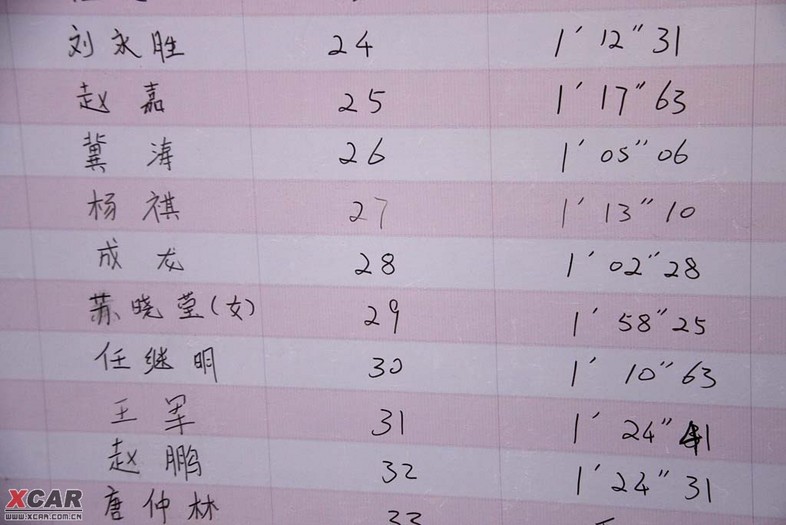 刘永胜 24 1′12″31
赵嘉 25 1′17″63
冀涛 26 1′05″06
杨祺 27 1′13″10
成龙 28 1′02″28
苏晓莹(女) 29 1′58″25
任继明 30 1′10″63
王军 31 1′24″41
赵鹏 32 1′24″31
唐仲林 33
XCAR
WWW.XCAR.COM.CN